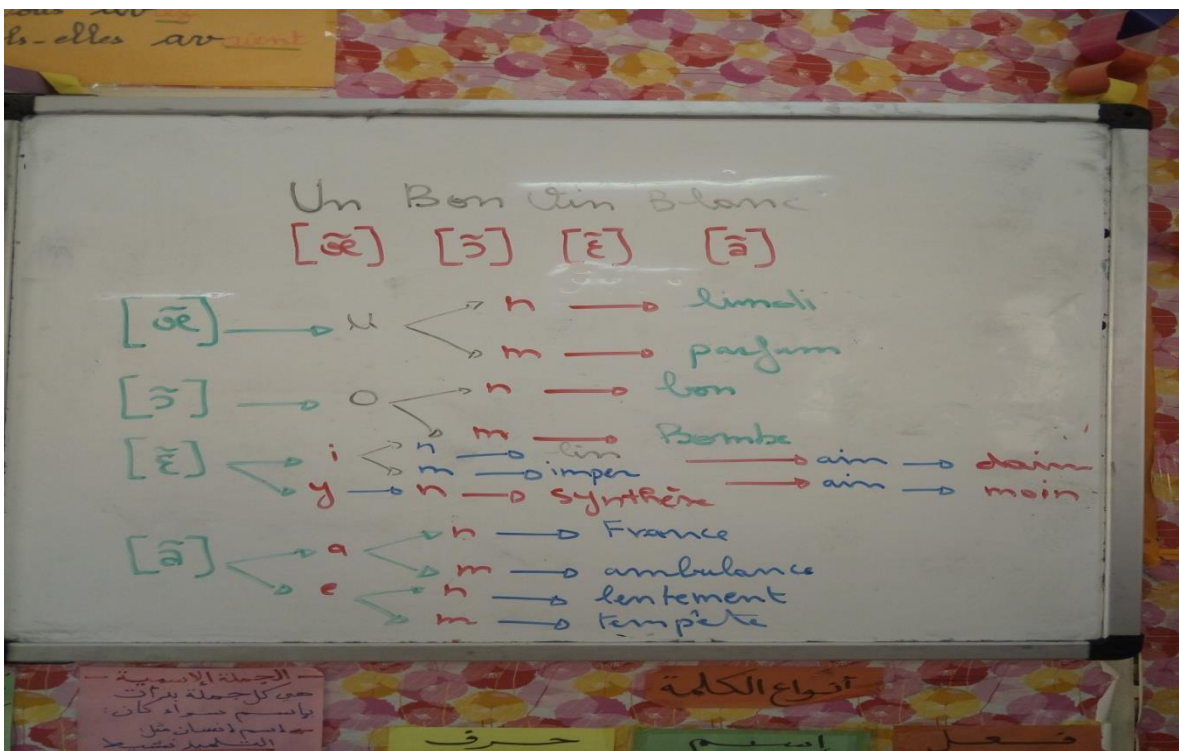 ils-elles avaient
Un Bon Vin Blanc
[œ̃] [ɔ̃] [ɛ̃] [ã]
[œ̃] → u → n → lundi
m → parfum
[ɔ̃] → o → n → bon
m → Bombe
[ɛ̃] → i → n → lin → aim → daim
m → imper
y → n → synthèse → ain → main
[ã] → a → n → France
m → ambulance
e → n → lentement
m → tempête
الجملة الإسمية
هي كل جملة بدأت
بإسم سواء كان:
اسم إنسان مثل:
أنواع الكلمة
فعل إسم حرف